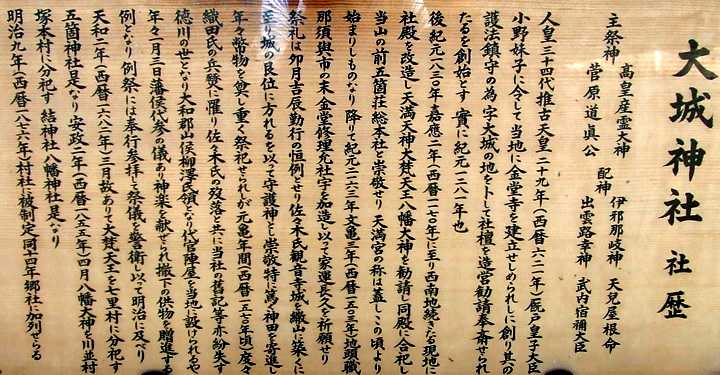 大城神社 社歴
主祭神 高皇産霊大神
菅原道真公
配神 伊邪那岐神 天兒屋根命
出雲路幸神 武内宿禰大臣
人皇三十四代推古天皇二十九年(西暦六二一年)厩戸皇子大臣
小野妹子に令して当地に金堂寺を建立せしめられしに創り其の
護法鎮守の為字大城の地を卜して社壇を造営勧請奉斎せられ
たるを創始とす 實に紀元一二八一年也
後紀元一八三〇年嘉應二年(西暦一一七〇年)に至り西南地続きたる現地に
社殿を改造し天満天神大梵天王八幡大神を勧請し同殿に合祀し
当山の前五箇荘総本社と崇敬せり 天満宮の称は蓋しこの頃より
始まりしものなり 降りて紀元二一六三年文亀三年(西暦一五〇三年)地頭職
那須與市の末 金堂修理允社宇を加造し以って家運長久を祈願せり
祭礼は卯月吉辰勤行の恒例とせり佐々木氏観音寺城を繖山に築くに
至り城の艮位に方れるを以て守護神と崇敬特に篤く神田を寄進し
年々幣物を奠し重く祭祀せられしが元亀年間(西暦一五七〇年頃)度々
織田氏の兵燹に罹り佐々木氏の没落と共に当社の舊記等亦紛失す
徳川の世となり大和郡山侯柳澤氏領となり代官陣屋を当地に設けられるや
年々一月三日藩侯代参の儀あり神楽を献ぜられ撤下の供物を贈進する
例となり 例祭には奉行参拝して祭儀を警衛し以って明治に及べり
天和二年(西暦一六八二年)三月故ありて大梵天王を七里村に分祀す
五箇神社是なり 安政二年(西暦一八五五年)四月八幡大神を川並村
塚本村に分祀す 結神社八幡神社是なり
明治九年(西暦一八七六年)村社に被制定同十四年郷社に加列せらる